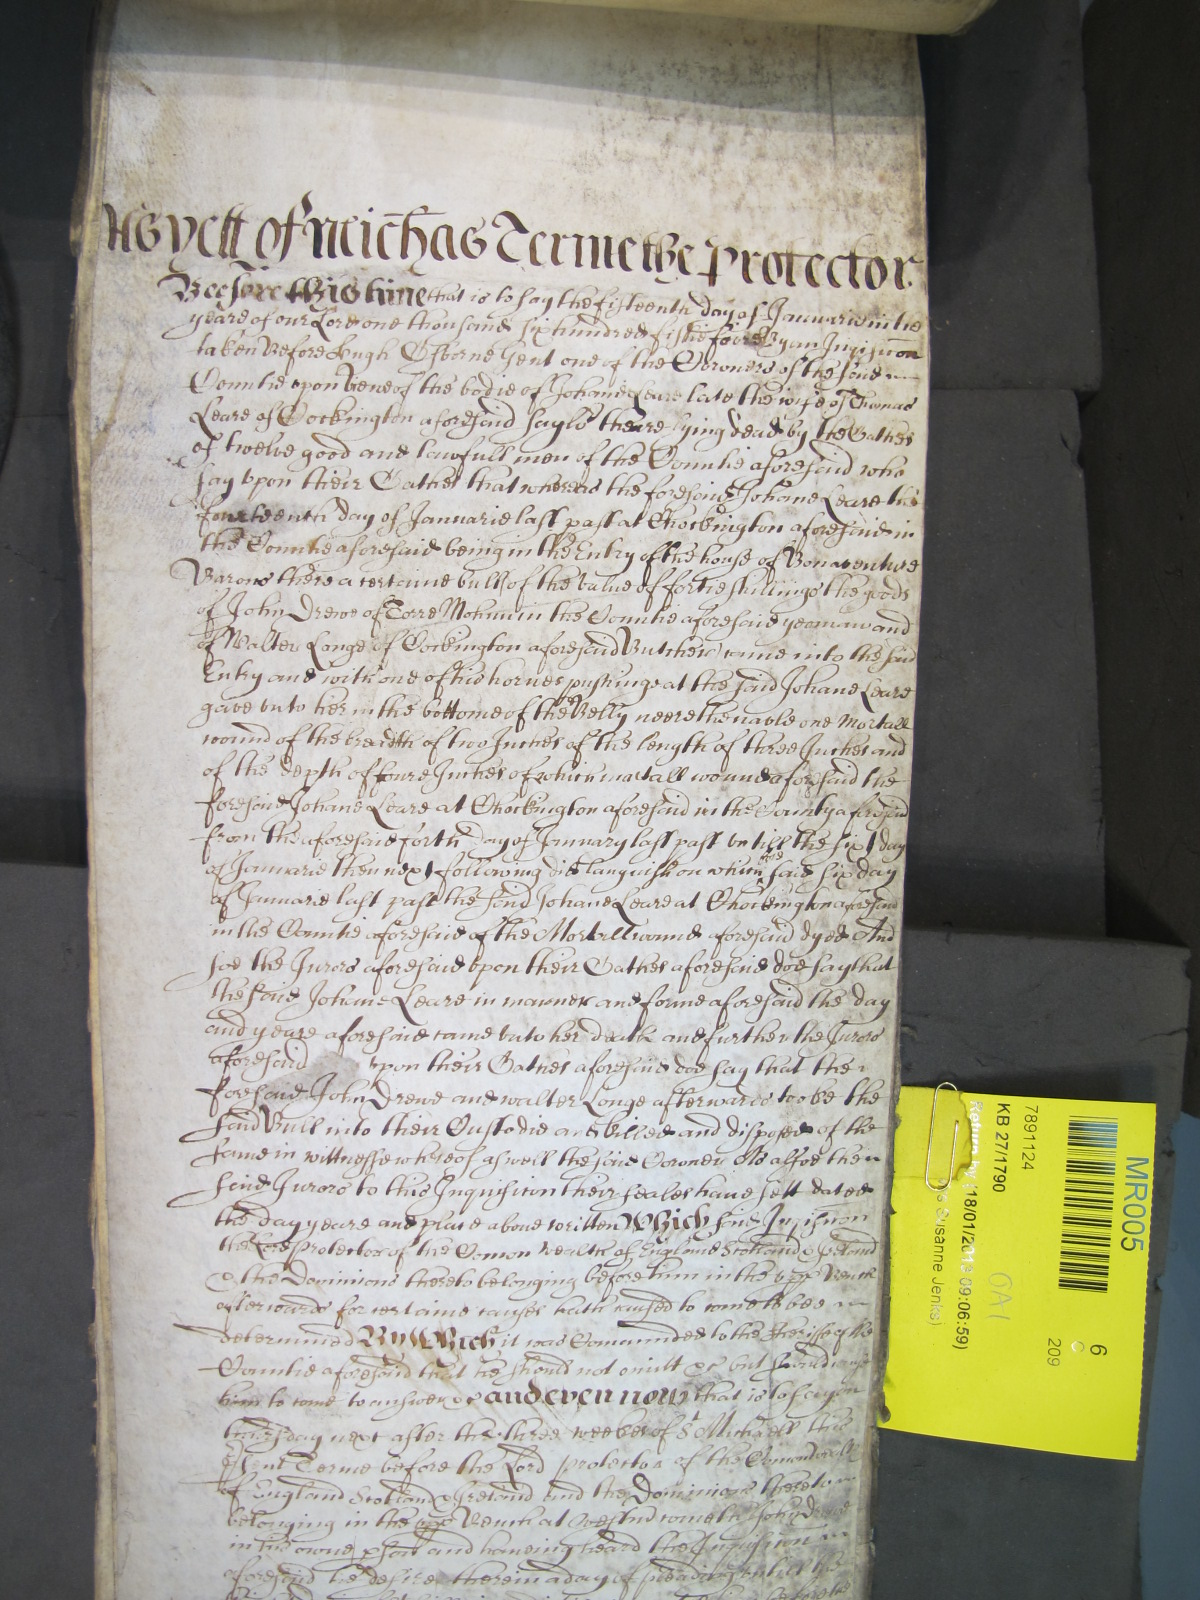 As yett of Michas Terme the Protector
Beefore this time that is to say the fifteenth day of Januarie in the
yeare of our Lord one thousand six hundred fiftie foure By an Inquisicon
taken Before Hugh Osborne Gent one of the Coroners of the said
Countie upon Viewe of the bodie of Johane Leare late the wife of Thomas
Leare of Cockington aforesaid there lying dead by the Oathes
of twelve good and lawfull men of the Countie aforesaid who
say upon their Oathes that whereas the foresaid Johane Leare the
fourteenth day of Januarie last past at Chockington aforesaid in
the Countie aforesaid being in the Entry of the house of Bonaventure
Barons there a certaine bull of the value of fortie shillings the goods
of John Drewe of Torre Mohun in the Countie aforesaid yeoman and
of Walter Longe of Cockington aforesaid Butcher came into the said
Entry and with one of his hornes pushinge at the said Johane Leare
gave unto her in the bottome of the Belly neere the navle one Mortall
wound of the breadth of two Inches of the length of three Inches and
of the depth of foure Inches of which mortall wound aforesaid the
foresaid Johane Leare at Chockington aforesaid in the County aforesaid
from the aforesaid forth day of January last past untill the sixt day
of Januarie then next following did languish on which the said six day
of Januarie last past the said Johane Leare at Chockington aforesaid
in the Countie aforesaid of the Mortall wound aforesaid dyed And
soe the Jurors aforesaid upon their Oathes aforesaid doe say that
the said Johane Leare in manner and forme aforesaid the day
and yeare aforesaid came unto her death and further the Jurors
aforesaid upon their Oathes aforesaid doe say that the
foresaid John Drewe and Walter Longe afterwards tooke the
said Bull into their Custodie and killed and disposed of the
same in wittnesse whereof aswell the said Coroner As alsoe the
said Jurors to this Inquisicon their seales have sett dated
the day yeare and place above written Which said Inquisicon
the Lord protector of the Comon wealth of England Scotland & Ireland
& the Dominions thereto belonging before him in the upp Bench
afterwards for certaine causes hath caused to come to bee
determined By Which it was Comaunded to the Sheriffe of the
Countie aforesaid that he should not omitt &c but should cause
him to come to answer &c and even now that is to say on
thursday next after the three weekes of St Michaell this
same Terme before the Lord protector of the Comonwealth
of England Scotland & Ireland and the Dominions thereto
belonging in the upp Bench at Westmr cometh John Drewe
in his owne pson and haveing heard the Inquisicon
aforesaid he desire therein a day of pleading
MR005
6
C
209
7891124
KB 27/1790
Return by (18/01/2013 09:06:59)
Susanne Jenks)